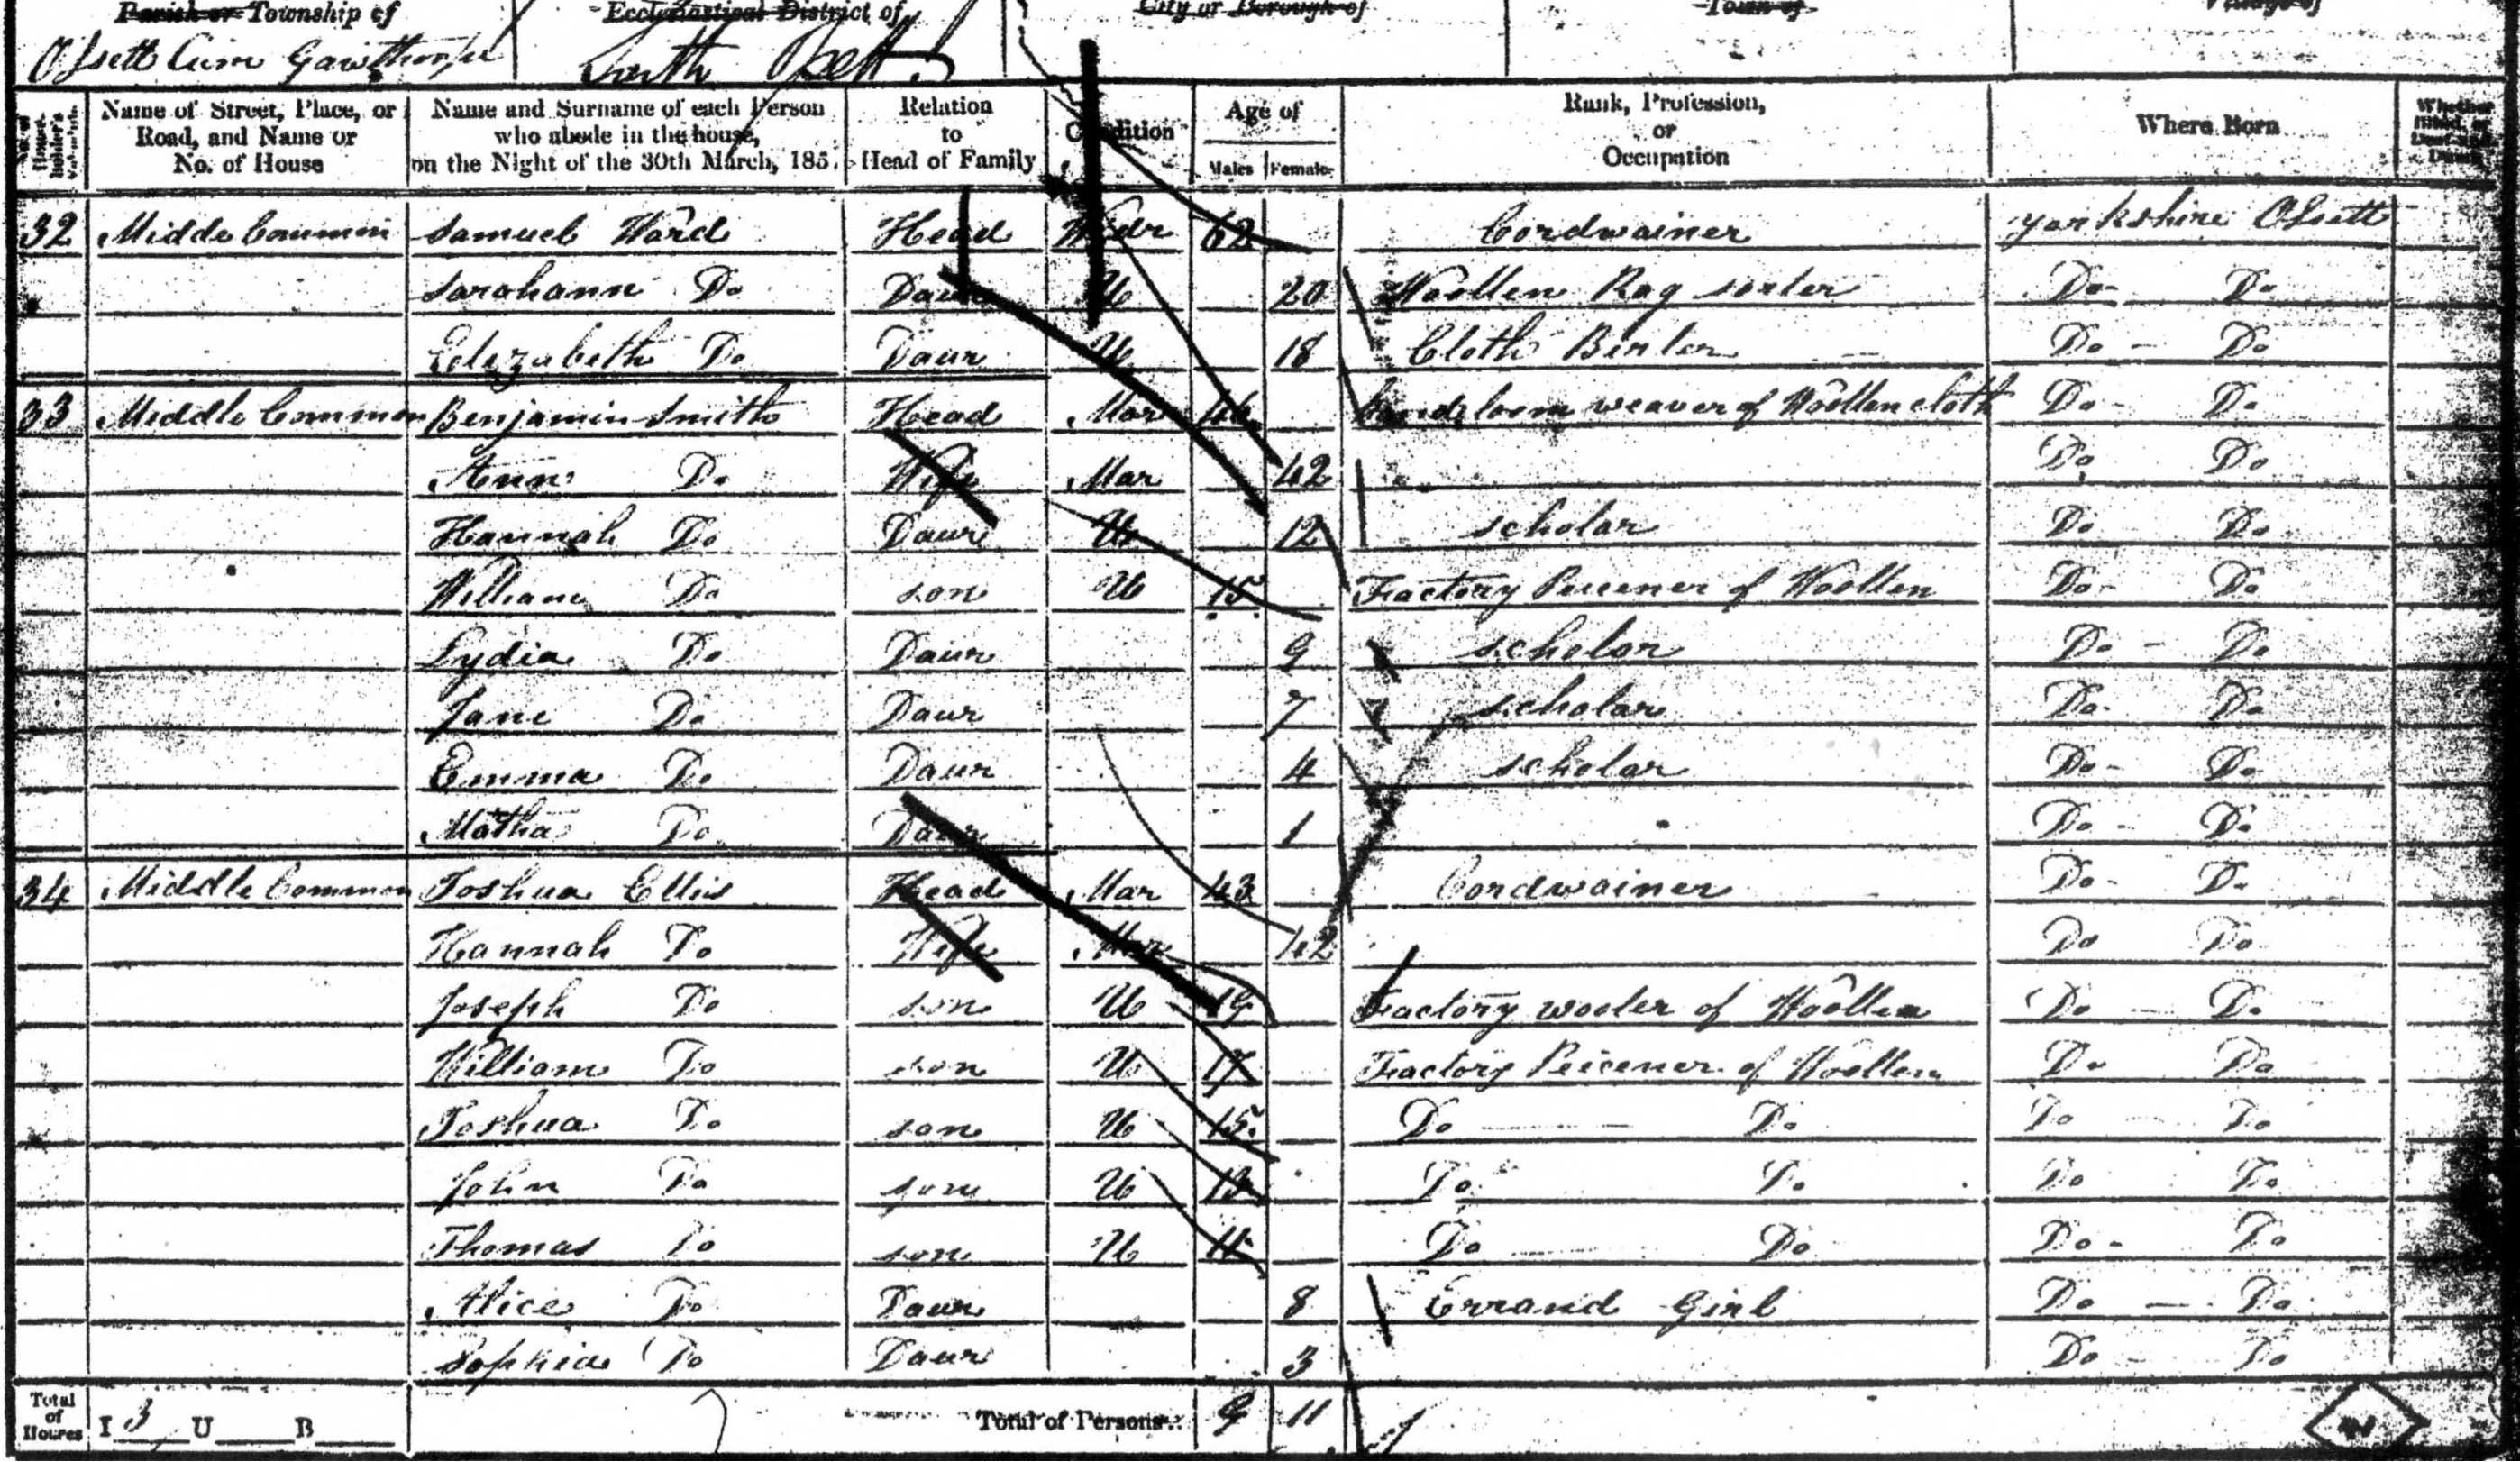 Parish or Township of Ecclesiastical District of City or Borough of Town of Village of
Ossett Cum Gawthorpe South Ossett
Name of Street, Place, or Road, and Name or No. of House
Name and Surname of each Person who abode in the house, on the Night of the 30th March, 185
Relation to Head of Family
Condition
Age of
Males Females
Rank, Profession, or Occupation
Where Born
32 Midde Common Samuel Ward Head Widr 62 Cordwainer Yorkshire Ossett
Sarahann Do Daur U 20 Woollen Rag sorter Do Do
Elizabeth Do Daur U 18 Cloth Burler Do Do
33 Middle Common Benjamin Smith Head Mar Hand loom weaver of Woollen cloth Do Do
Ann Do Wife Mar 42 Do Do
Hannah Do Daur U 12 scholar Do Do
William Do son U 15 Factory Peicener of Woollen Do Do
Lydia Do Daur 9 scholar Do Do
Jane Do Daur 7 scholar Do Do
Emma Do Daur 4 scholar Do Do
Matha Do Daur 1 Do Do
34 Middle Common Joshua Ellis Head Mar 43 Cordwainer Do Do
Hannah Do Wife Mar 42 Do Do
Joseph Do son U 19 Factory of Woollen Do Do
William Do son U 17 Factory Peicener of Woollen Do Do
Joshua Do son U 15 Do Do Do Do
John Do son U 13 Do Do Do Do
Thomas Do son U 11 Do Do Do Do
Alice Do Daur 8 Errand Girl Do Do
Sophia Do Daur 3 Do Do
Total of Houses I 3 U B Total of Persons 9 11